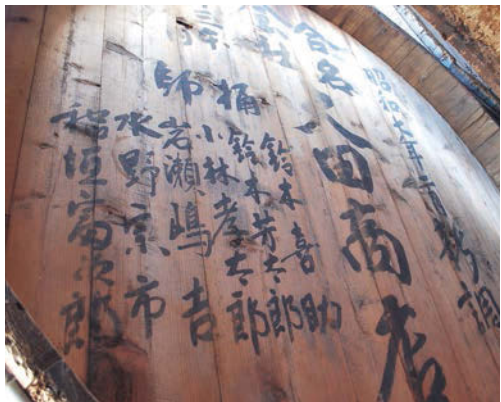 昭和七年二月新調
合名会社八田商店
桶師
鈴木喜助
鈴木芳太郎
小林孝太郎
岩瀬嶋吉
水野京市
稲垣富次郎